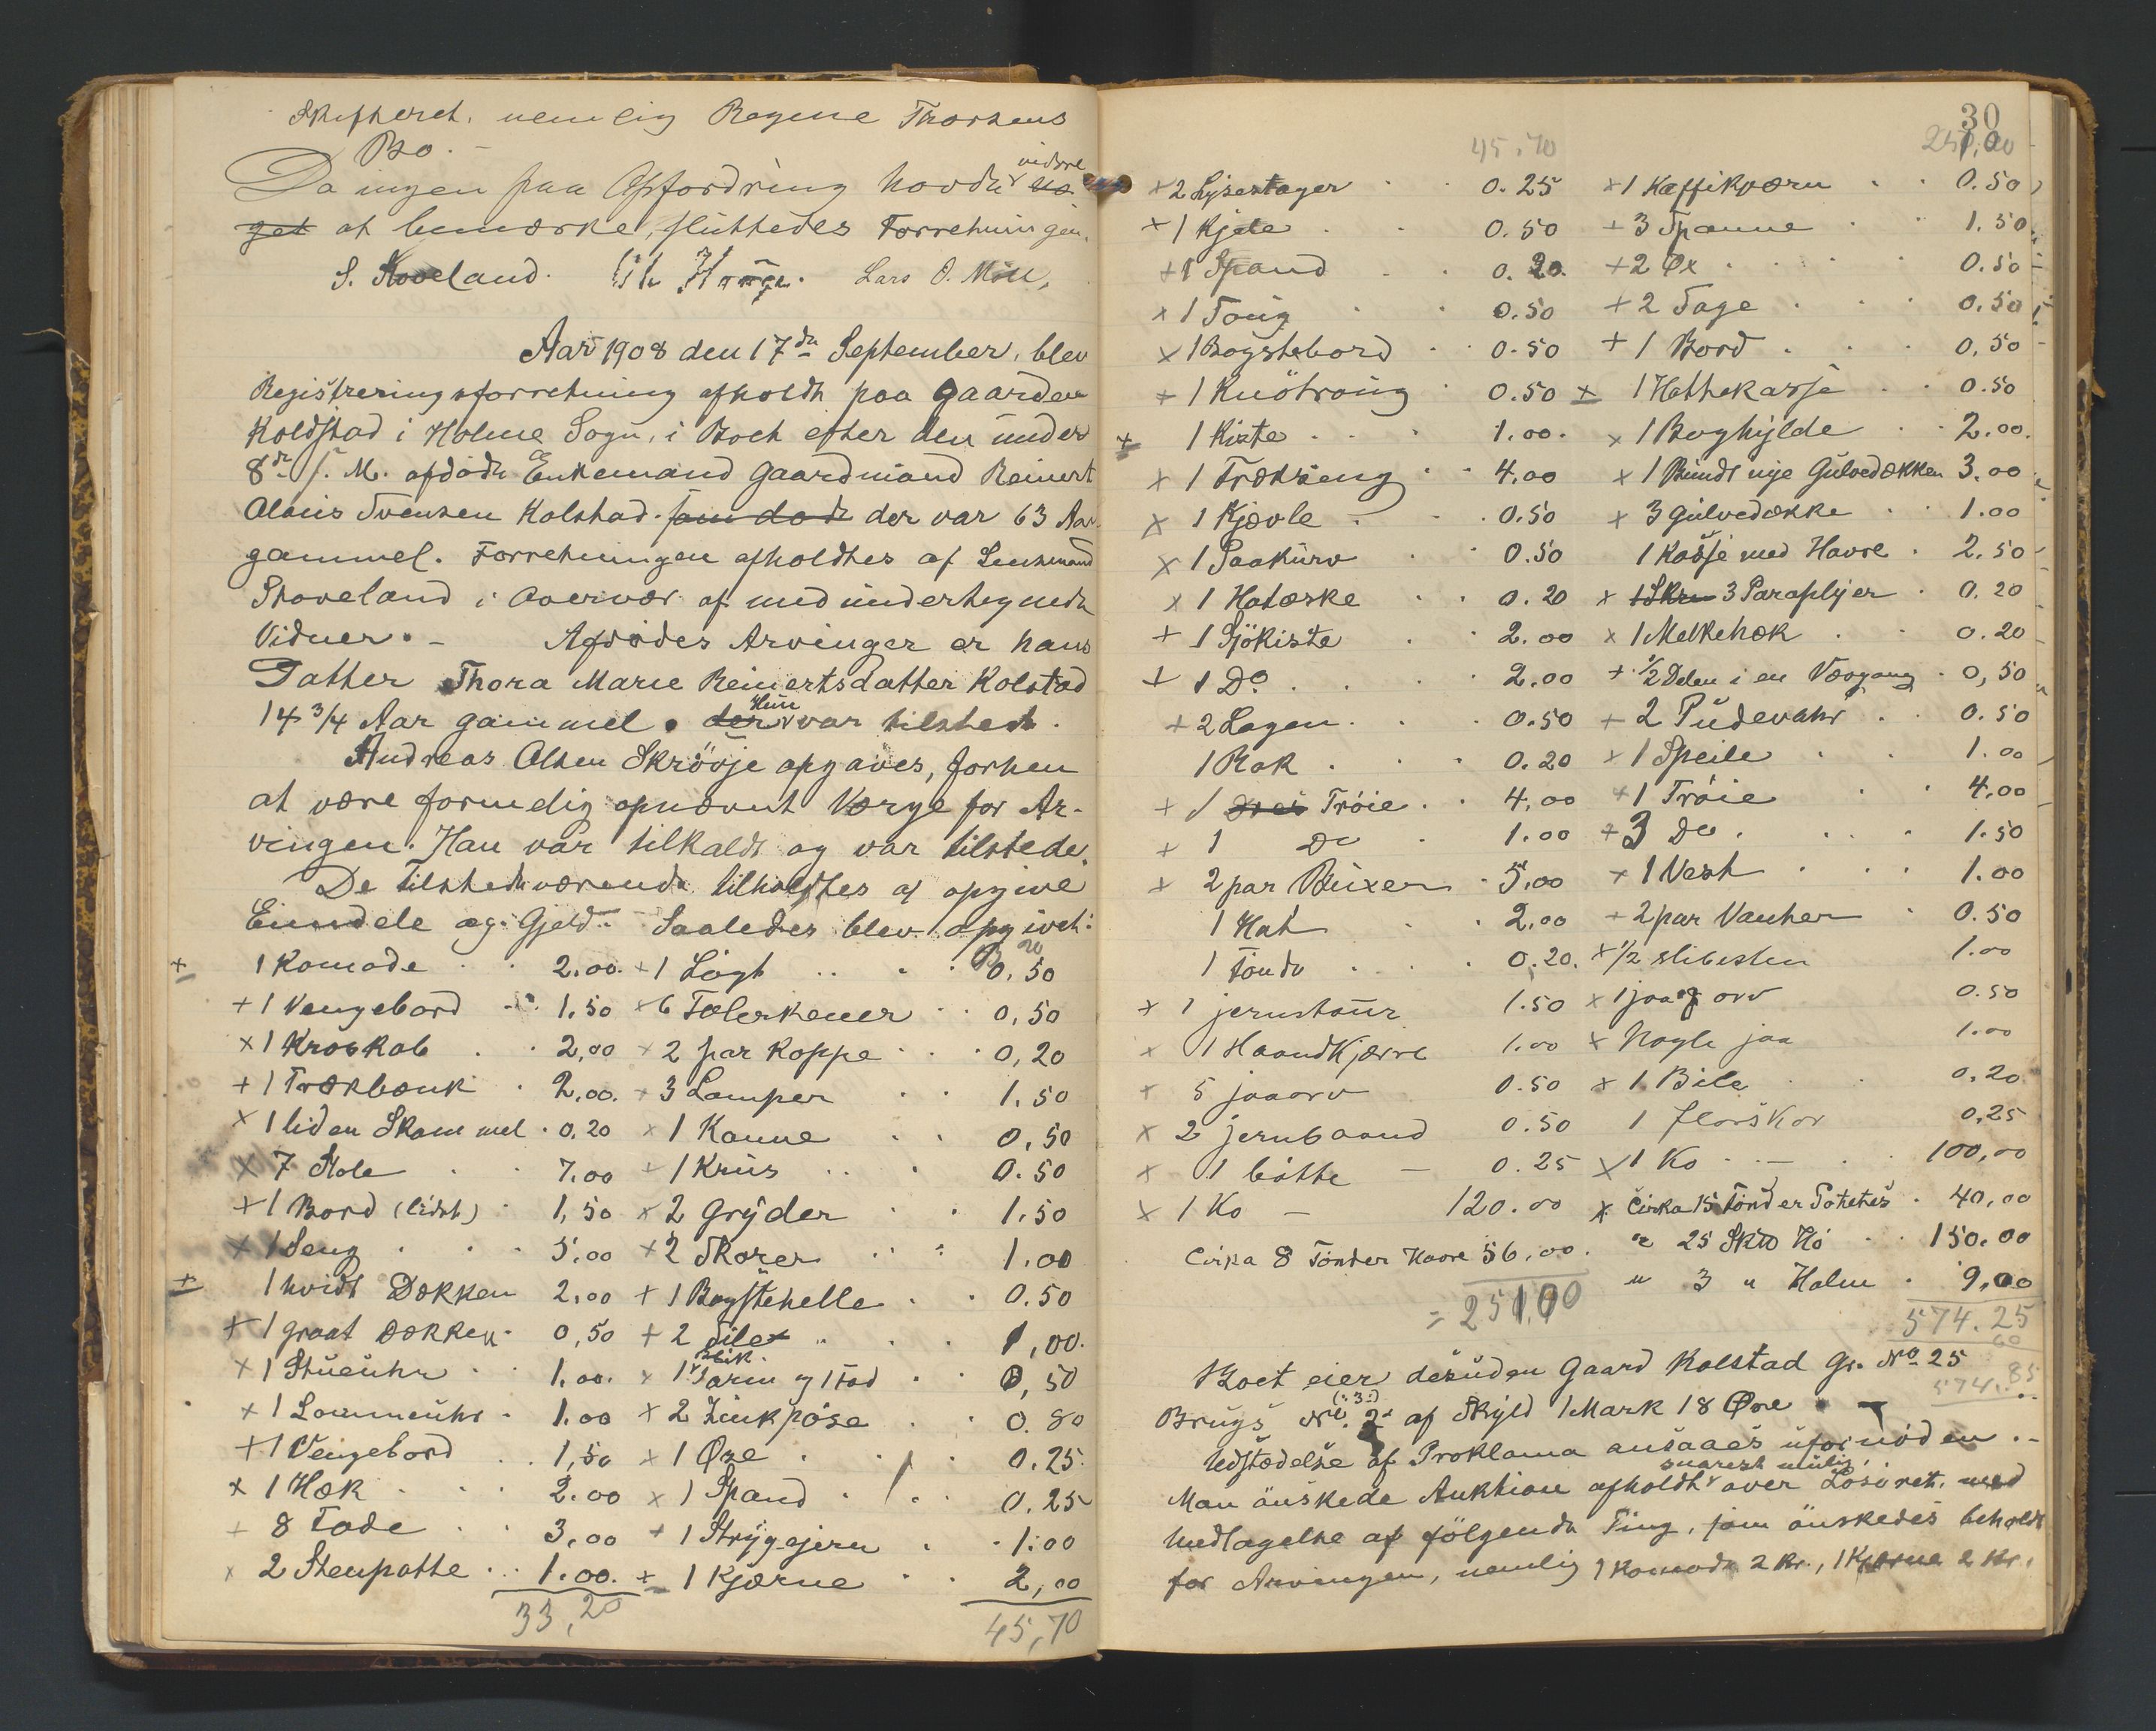 Skifteret, nemlig Regine Thorsens
Bo. –
videre
Da ingen paa Opfordring havde no-
get at bemærke, sluttedes Forretningen.
S. Stoveland. Lars O. Moll,
Aar 1908 den 17de September, blev
Registreringsforretning afholdt paa Gaarden
Koldstad i Holme Sogn, i Boet efter den under
8de f. M. afdøde Enkemand Gaardmand Reinert
Olaus Svensen Kolstad. som døde der var 63 Aar
gammel. Forretningen afholdtes af Lensmand
Stoveland i Overvær af medundertegnede
Vidner. – Afdødes Arvinger er hans
Datter Thora Marie Reinertsdatter Kolstad
Hun
14 3/4 Aar gammel. der var tilstede.
Andreas Olsen Skrövje opgaves, forhen
at være formelig opnævnt Værge for Ar-
vingen. Han var tilkaldt og var tilstede.
De tilstedeværende tilholdtes at opgive
Eiendele og Gjeld. Saaledes blev opgivet:
x 1 Komode . . 2.00. + 1 Lögt . . . 0.50
+ 1 Vengebord . 1.50 x 6 Tælerkener . . 0,50
x 1 Kroskab . . 2,00 x 2 par Koppe . . . 0,20
+ 1 Trækbænk . 2.00. + 3 Lamper . . 1.50
x 1 liden Skammel . 0,20 x 1 Kanne . . 0,50
x 7 Stole . . 7.00 + 1 Krus . . . 0.50
+ 1 Bord (lidet) . 1,50 x 2 Gryder . . 1.50
x 1 Seng . . . 5.00 + 2 Skorer . . . 1.00
+ 1 hvidt Dækken 2,00 + 1 Bagstehelle . . 0.50
+ 1 graat Dækken . 0,50 + 2 Siler . . 1,00.
Blik
x 1 Stueuhr . . 1.00. x 1 Form og 1 Fad . . 0,50
x 1 Lommeuhr . 1.00 x 2 Zinkpöse . . 0.80
+ 1 Vengebord . . 1,50 x 1 Øxe . . . 0.25.
x 1 Hæk . . . 2.00 x 1 Spand . . . 0.25
+ 8 Fade . . 3,00 + 1 Strygejern . . 1:00
x 2 Stenpotte . . 1.00. + 1 Kjærne . . 2,00
33,20 45,70
30
45.70 251,00
x 2 Lysestager . . 0.25 x 1 Kaffikværn . . 0.50
+ 1 Kjele . . 0.50 + 3 Spanne . . 1.50
+ 1 Spand . . 0.20. + 2 Øx . . . . 0.50
x 1 Tong . . 0.50 + 2 Sage . . . 0.50
x 1 Bagstebord . . 0.50 + 1 Bord . . . 0.50
+ 1 Knötraug . 0.50 x 1 Hattekasse . . 0.50
x 1 Kiste . . . 1.00. x 1 Boghylde . . 2.00.
x 1 Trækseng . . 4.00 x 1 Bundt nye Gulvedækken 3.00
x 1 Kjevle . . . 0.50 x 3 Gulvedække . . 1.00
x 1 Saakurv . . 0.50 1 Kasse med Havre . 2.50
x 1 Hatæske . . 0.20 x 1 Skru 3 Paraplyer . 0.20
+ 1 Sjökiste . . 2.00 x 1 Melkehæk . . 0.20
+ 1 Do . . . . 2.00 + 1/2 Delen i en Vævgang . 0,50
+ 2 Lagen . . . 0.50 + 2 Pudevahr . . 0.50
1 Rok . . . 0.20 x 1 Speile . . 1.00
+ 1 Trøie . . 4,00 + 1 Trøie . . 4.00
+ 1 Do . 1.00 + 3 Do . . . . 1.50
x 2 par Buxer . 5.00 + 1 Vest . . . 1.00
1 Hat . . 2,00 + 2 par Vanter . 0.50
1 Tönde . . . . 0.20. x 1/2 slibesten 1.00
x 1 jernstaur 1.50 x 1 jaa og orv 0.50
x 1 Haandkjærre 1.00 x Nogle jaa 1.00
+ 5 jaaorv 0.50 x 1 Bile . . 0.20
x 2 jernbaand 0.50 1 florskor 0,25
x 1 bötte – 0.25 x 1 Ko . . – . . 100,00
x 1 Ko – 120.00 x Cirka 15 Tönder Potetes . 40,00
Cirka 8 Tönder Havre 56,00. " 25 Skto Hö . . 150.00
" 3 " Halm . 9,00
= 251.00
574.25
60
574.85
Boet eier desuden Gaard Kolstad Gr. No 25
(:3:)
Brugs No. 2 af Skyld 1 Mark 18 Øre . –
Udstædelse af Proklama ansaaes ufornöden . –
snarest mulig
Man önskede Auktion afholdt over Lösöret, med
Undtagelse af fölgende Ting, som önskedes beholdt
for Arvingen, nemlig 1 Komode 2 kr., 1 Kjærne 2 kr.,